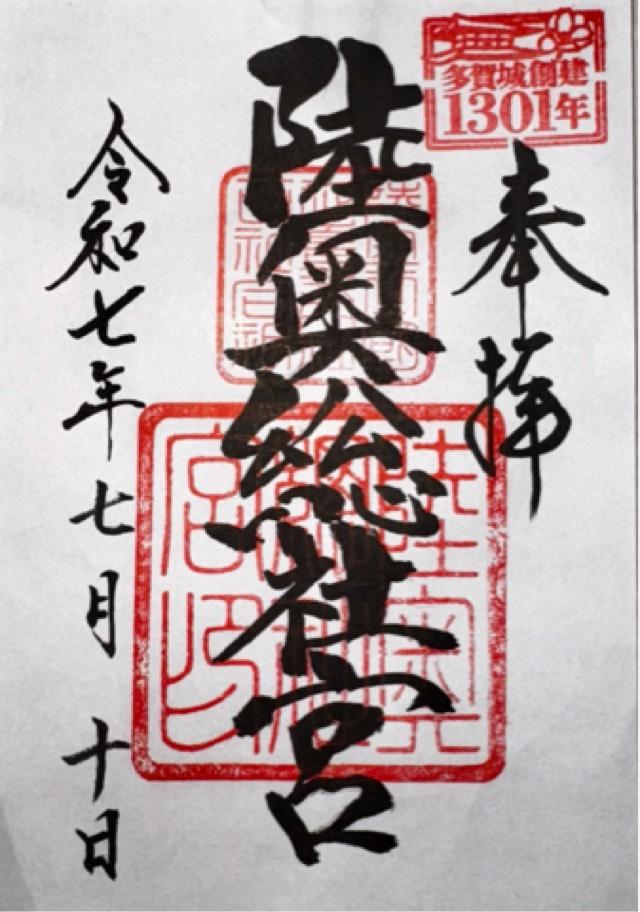 多賀城創建
1301年
奉拝
陸奥総社宮
令和七年七月十日